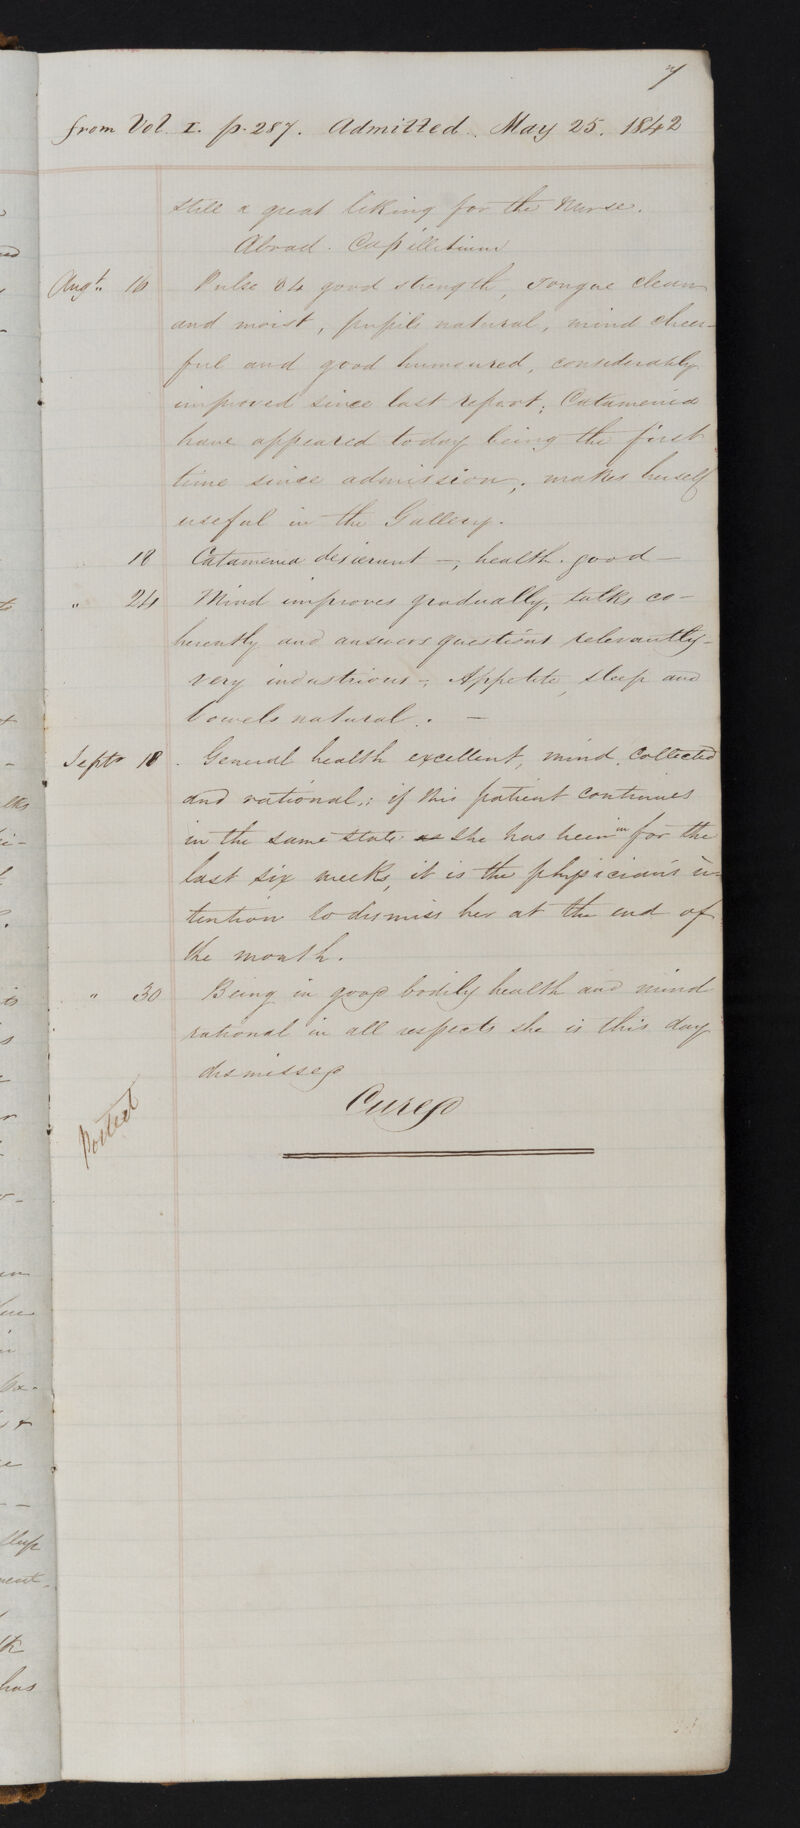 7
from Vol. I. p. 287. Admitted. May 25. 1842
still a great liking for the Nurse.
Abrad. Capillitium
Augt. 16 Pulse 84 good strength, Tongue clean
and moist, pupils natural, mind cheer-
ful and good humoured, considerably
improved since last report; Catamenia
have appeared today being the first
time since admission; makes herself
useful in the Gallery.
18 Catamenia desierunt —, health good —
" 24 Mind improves gradually, talks co-
herently and answers questions relevantly –
very industrious –, Appetite, sleep and
bowels natural. —
Septr 18 . General health excellent, mind collected
and rational; if this patient continues
in the same state as she has been in for the
last six weeks, it is the physician's in-
tention to dismiss her at the end of
the month.
" 30 Being in good bodily health and mind
rational in all respects she is this day
dismissed
Cured
Posted